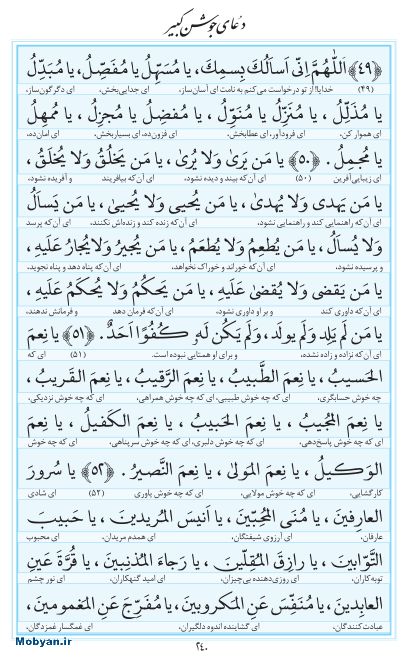 دعای جوشن کبیر
﴿٤٩﴾ اَللّٰهُمَّ اِنّی اَسأَلُكَ بِسمِكَ، یا مُسَهِّلُ یا مُفَصِّلُ، یا مُبَدِّلُ
(۴۹) خدایا! از تو درخواست می‌کنم به نامت ای آسان‌ساز، ای جدایی‌بخش، ای دگرگون‌ساز،
یا مُذَلِّلُ، یا مُنَزِّلُ یا مُنَوِّلُ، یا مُفضِلُ یا مُجزِلُ، یا مُمهِلُ
ای هموار کن، ای فرودآور، ای عطابخش، ای فزون‌ده، ای بسیاربخش، ای امان‌ده،
یا مُجمِلُ. ﴿٥٠﴾ یا مَن یَریٰ وَلا یُریٰ، یا مَن یَخلُقُ وَلا یُخلَقُ،
ای زیبایی‌آفرین (۵۰) ای آن‌که بیند و دیده نشود، ای آن‌که بیافریند و آفریده نشود،
یا مَن یَهدی وَلا یُهدیٰ، یا مَن یُحیی وَلا یُحییٰ، یا مَن یَسأَلُ
ای آن‌که راهنمایی کند و راهنمایی نشود، ای آن‌که زنده کند و زنده‌اش نکنند، ای آن‌که پرسد
وَلا یُسأَلُ، یا مَن یُطعِمُ وَلا یُطعَمُ، یا مَن یُجیرُ وَلایُجارُ عَلَیهِ،
و پرسیده نشود، ای آن‌که خوراند و خوراک نخواهد، ای آن‌که پناه دهد و پناه نجوید،
یا مَن یَقضی وَلا یُقضیٰ عَلَیهِ، یا مَن یَحکُمُ وَلا یُحکَمُ عَلَیهِ،
ای آن‌که داوری کند و بر او داوری نشود، ای آن‌که فرمان دهد و فرمانش ندهند،
یا مَن لَم یَلِد وَلَم یولَد، وَلَم یَکُن لَهُ کُفُوًا اَحَدٌ. ﴿٥١﴾ یا نِعمَ
ای آن‌که نزاده و زاده نشده، و برای او همتایی نبوده است. (۵۱) ای که
الحَسیبُ، یا نِعمَ الطَّبیبُ، یا نِعمَ الرَّقیبُ، یا نِعمَ القَریبُ،
چه خوش حسابگری، ای که چه خوش طبیبی، ای که چه خوش همراهی، ای که چه خوش نزدیکی،
یا نِعمَ المُجیبُ، یا نِعمَ الحَبیبُ، یا نِعمَ الکَفیلُ، یا نِعمَ
ای که چه خوش پاسخ‌دهی، ای که چه خوش دلبری، ای که چه خوش سرپناهی، ای که چه خوش
الوَکیلُ، یا نِعمَ المَولیٰ، یا نِعمَ النَّصیرُ. ﴿٥٢﴾ یا سُرورَ
کارگشایی، ای که چه خوش مولایی، ای که چه خوش یاوری (۵۲) ای شادی
العارِفینَ، یا مُنَی المُحِبّینَ، یا اَنیسَ المُریدینَ، یا حَبیبَ
عارفان، ای آرزوی شیفتگان، ای همدم مریدان، ای محبوب
التَّوّابینَ، یا رازِقَ المُقِلّینَ، یا رَجاءَ المُذنِبینَ، یا قُرَّةَ عَینِ
توبه‌کاران، ای روزی‌دهنده بی‌چیزان، ای امید گنهکاران، ای نور چشم
العابِدینَ، یا مُنَفِّسَ عَنِ المَکروبینَ، یا مُفَرِّجَ عَنِ المَغمومینَ،
عبادت‌کنندگان، ای گشاینده اندوه دلگیران، ای غمگسار غمزدگان،
۲۴۰
Mobyan.ir